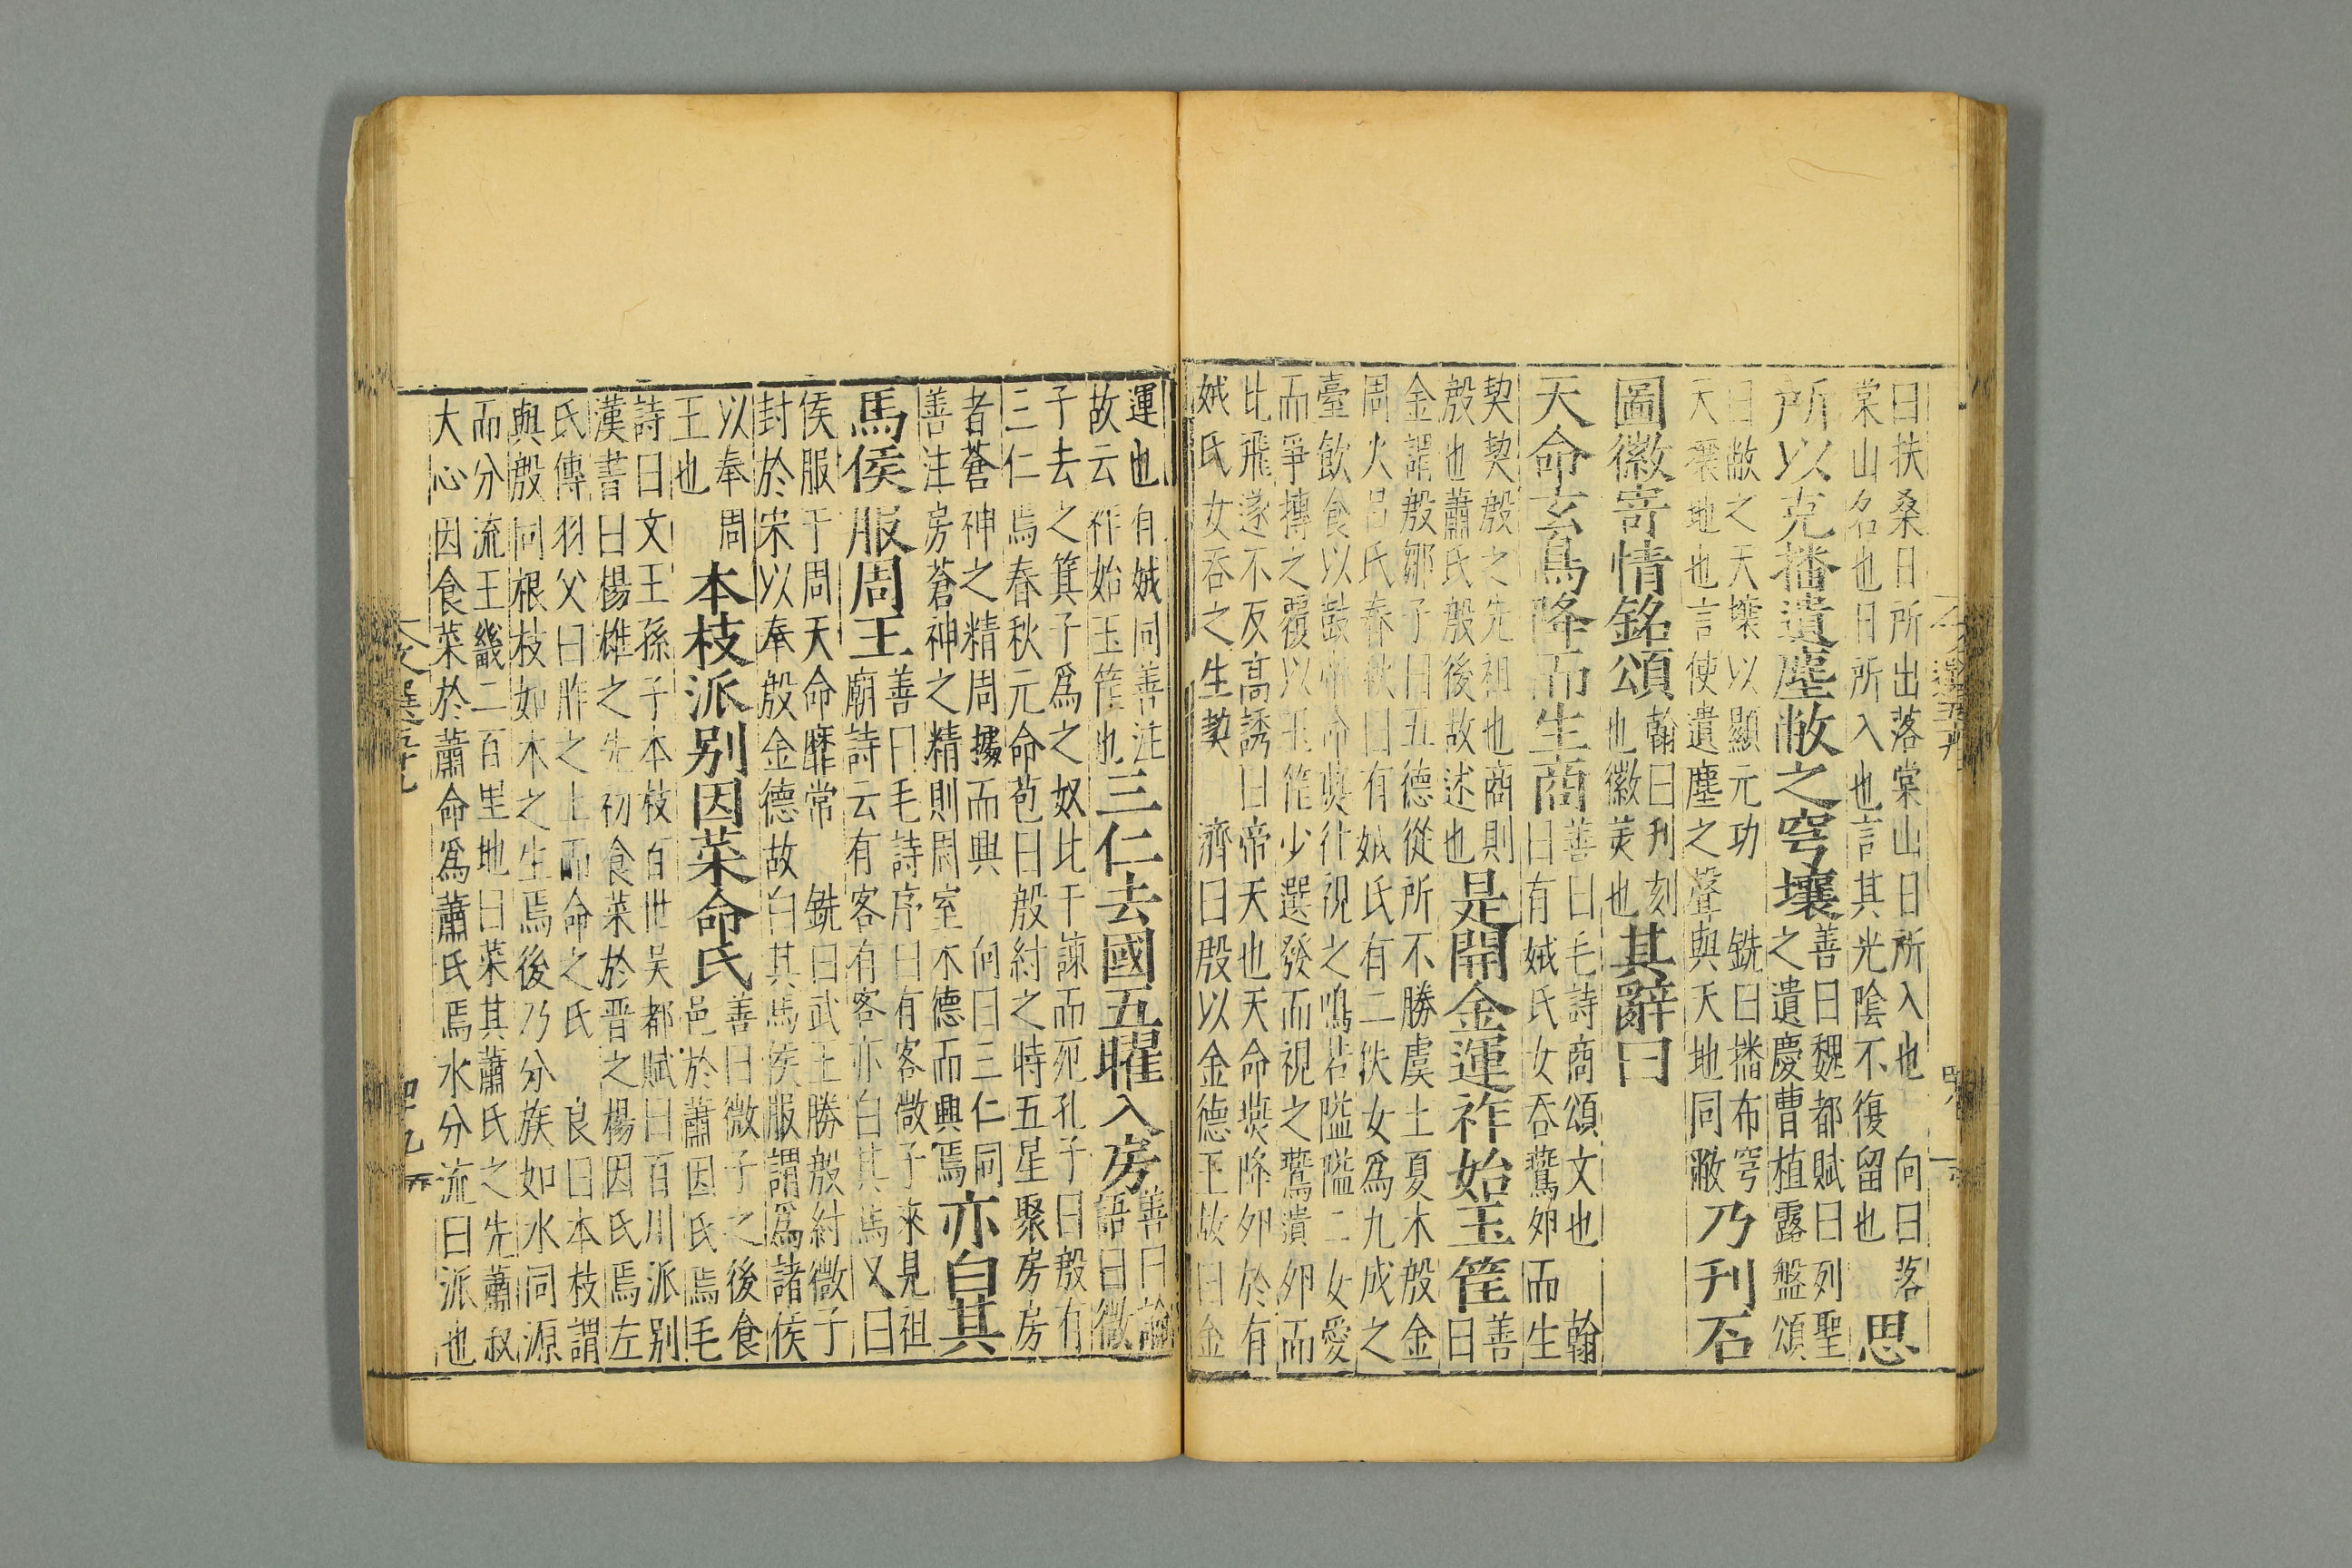 曰扶桑日所出落棠山日所入也 向曰落
棠山名也日所入也言其光陰不復留也 思
所以克播遺塵敝之穹壤善曰魏都賦曰列聖
之遺慶曹植露盤頌
曰敝之天壤以顯元功 銑曰播布穹
天壤地也言使遺塵之聲與天地同敝乃刊石
圖徽寄情銘頌翰曰刊刻
也徽美也其辭曰
天命玄鳥降而生商善曰毛詩商頌文也 翰
曰有娀氏女吞鷰卵而生
契契殷之先祖也商則
殷也蕭氏殷後故述也是開金運祚始玉筐善
曰
金謂殷鄒子曰五德從所不勝虞土夏木殷金
周火呂氏春秋曰有娀氏有二佚女爲九成之
臺飲食以鼓帝令鷰往視之鳴若隘隘二女愛
而爭摶之覆以玉筐少選發而視之鷰潰卵而
比飛遂不反高誘曰帝天也天命鷰降卵於有
娀氏女吞之生契 濟曰殷以金德王故曰金
運也有娀同善注
故云祚始玉筐也三仁去國五曜入房善曰論
語曰微
子去之箕子爲之奴比干諫而死孔子曰殷有
三仁焉春秋元命苞曰殷紂之時五星聚房房
者蒼神之精周據而興 向曰三仁同
善注房蒼神之精則周室木德而興焉亦白其
馬侯服周王善曰毛詩序曰有客微子來見祖
廟詩云有客有客亦白其馬又曰
侯服于周天命靡常 銑曰武王勝殷紂微子
封於宋以奉殷金德故白其馬侯服謂爲諸侯
以奉周
王也本枝派别因菜命氏善曰微子之後食
邑於蕭因氏焉毛
詩曰文王孫子本枝百世吳都賦曰百川派别
漢書曰楊雄之先初食菜於晋之楊因氏焉左
氏傳羽父曰胙之土而命之氏 良曰本枝謂
與殷同根枝如木之生焉後乃分族如水同源
而分流王畿二百里地曰菜其蕭氏之先蕭叔
大心因食菜於蕭命爲蕭氏焉水分流曰派也